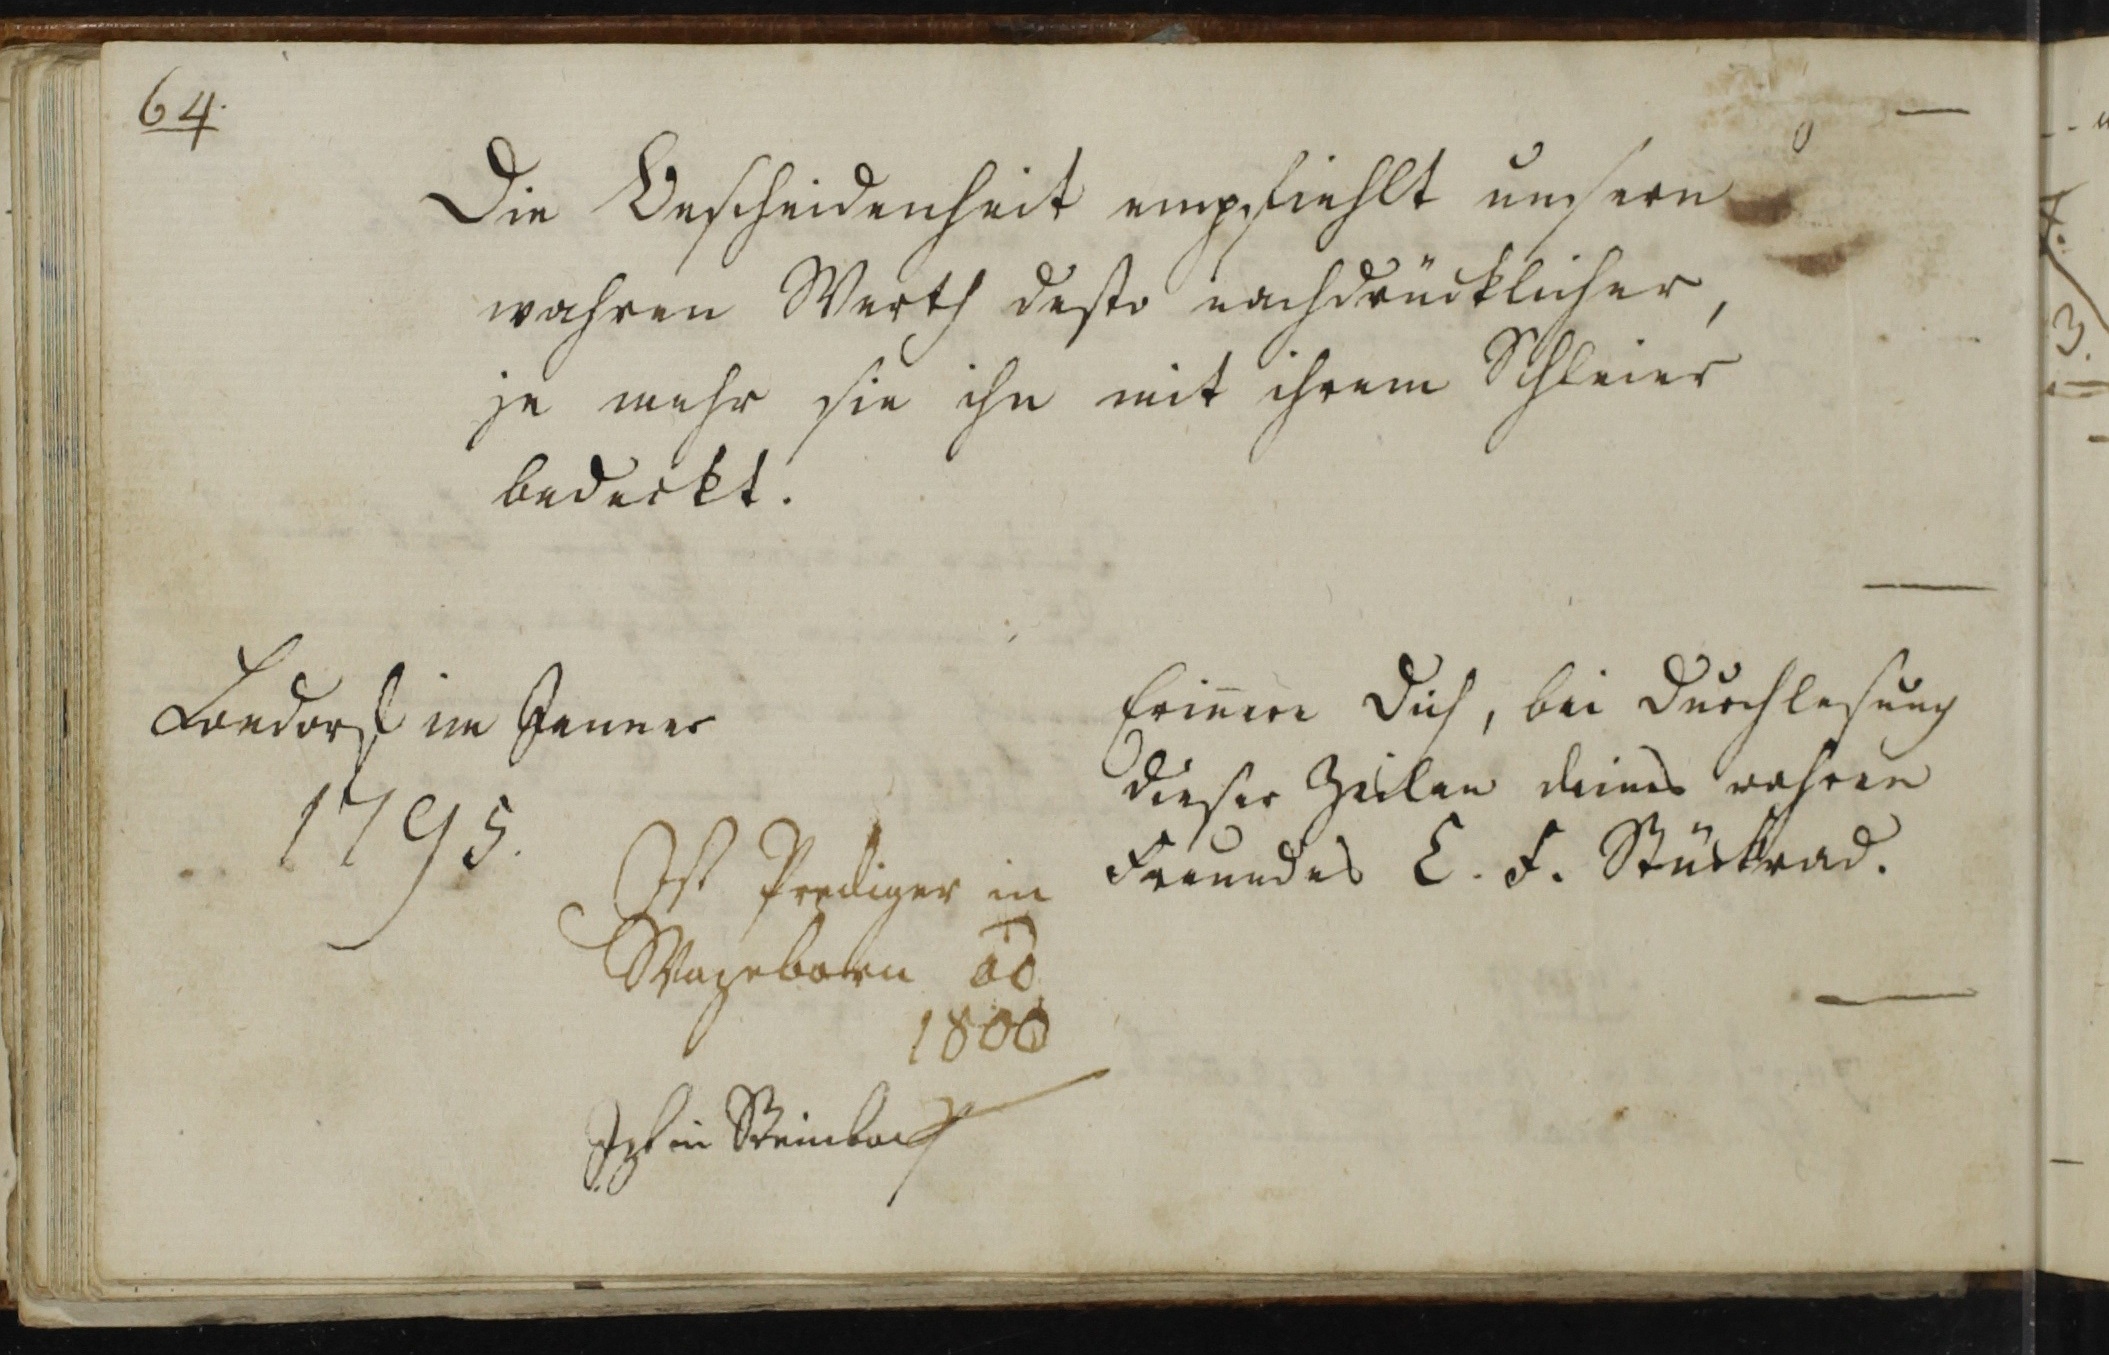 64.
Die Bescheidenheit empfiehlt unsern
wahren Werth desto nachdrücklicher,
je mehr sie ihn mit ihrem Schleier
bedeckt.
Londorf im Jenner
1795.
Erinnere Dich, bei Durchlesung
dieser Zeilen deines wahren
Freundes C. F. Stückrad.
Ist Prediger in
Wazeborn
1800
Jzt in Steinbach